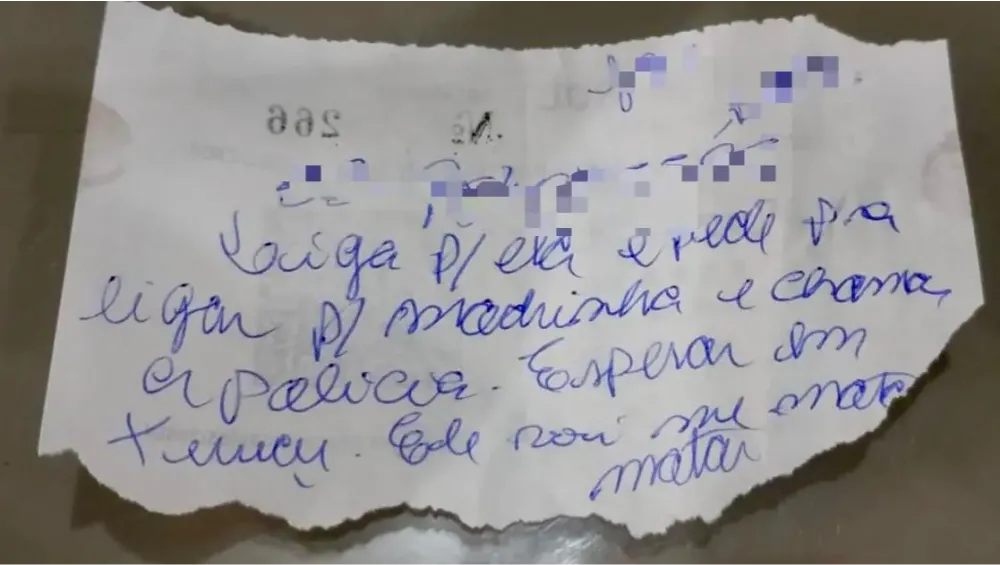 Nº 266
Liga p/ ela e pede pra
ligar p/ madrinha e chama
a policia. Esperar em
Ele vai me mata
matar